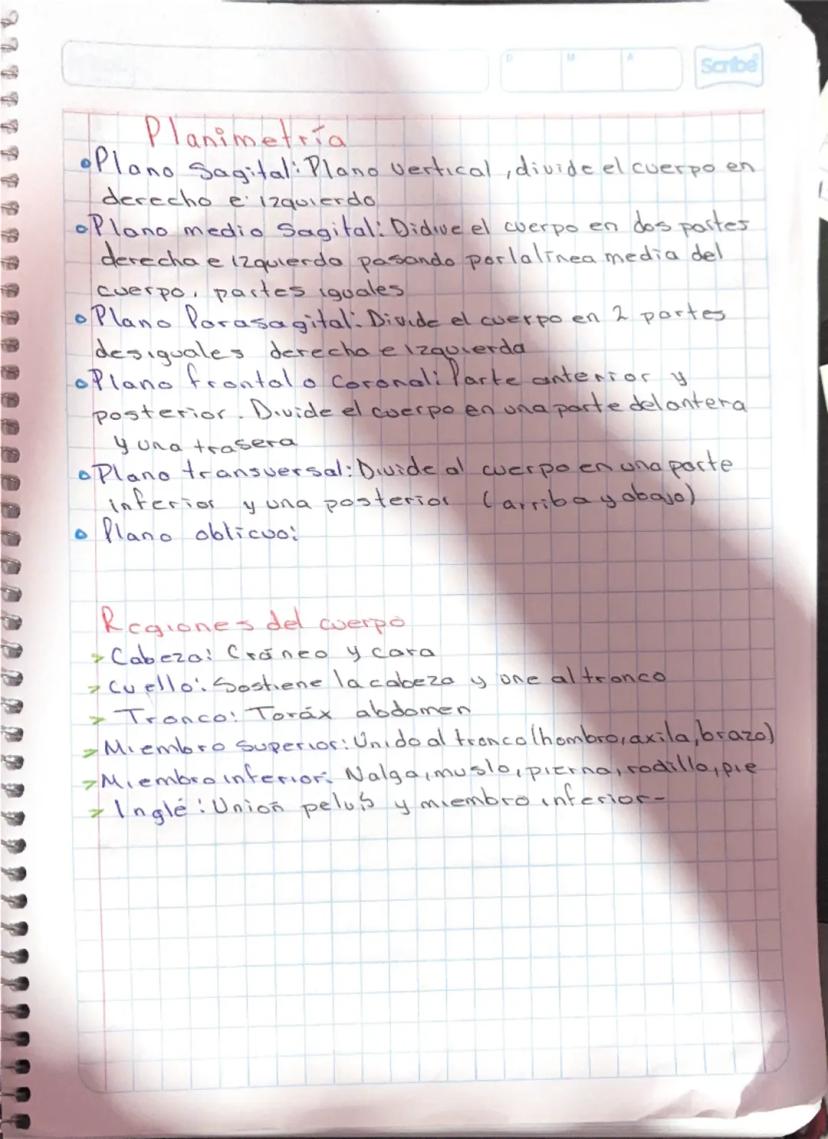 D M A Scribe
Planimetría
Plano Sagital: Plano vertical, divide el cuerpo en
derecho e izquierdo
Plano medio Sagital: Didive el cuerpo en dos partes
derecha e izquierda pasando por la línea media del
cuerpo, partes iguales
Plano Parasagital: Divide el cuerpo en 2 partes
desiguales derecha e izquierda
Plano frontal o coronal: Parte anterior y
posterior. Divide el cuerpo en una parte delantera
y una trasera
Plano transversal: Divide al cuerpo en una parte
inferior y una posterior (arriba y abajo)
Plano oblicuo:
Regiones del cuerpo
> Cabeza: Cráneo y cara
> Cuello: Sostiene la cabeza y une al tronco
> Tronco: Toráx abdomen
> Miembro superior: Unido al tronco (hombro, axila, brazo)
> Miembro inferior: Nalga, muslo, pierna, rodilla, pie
> Inglé: Unión pelvis y miembro inferior-